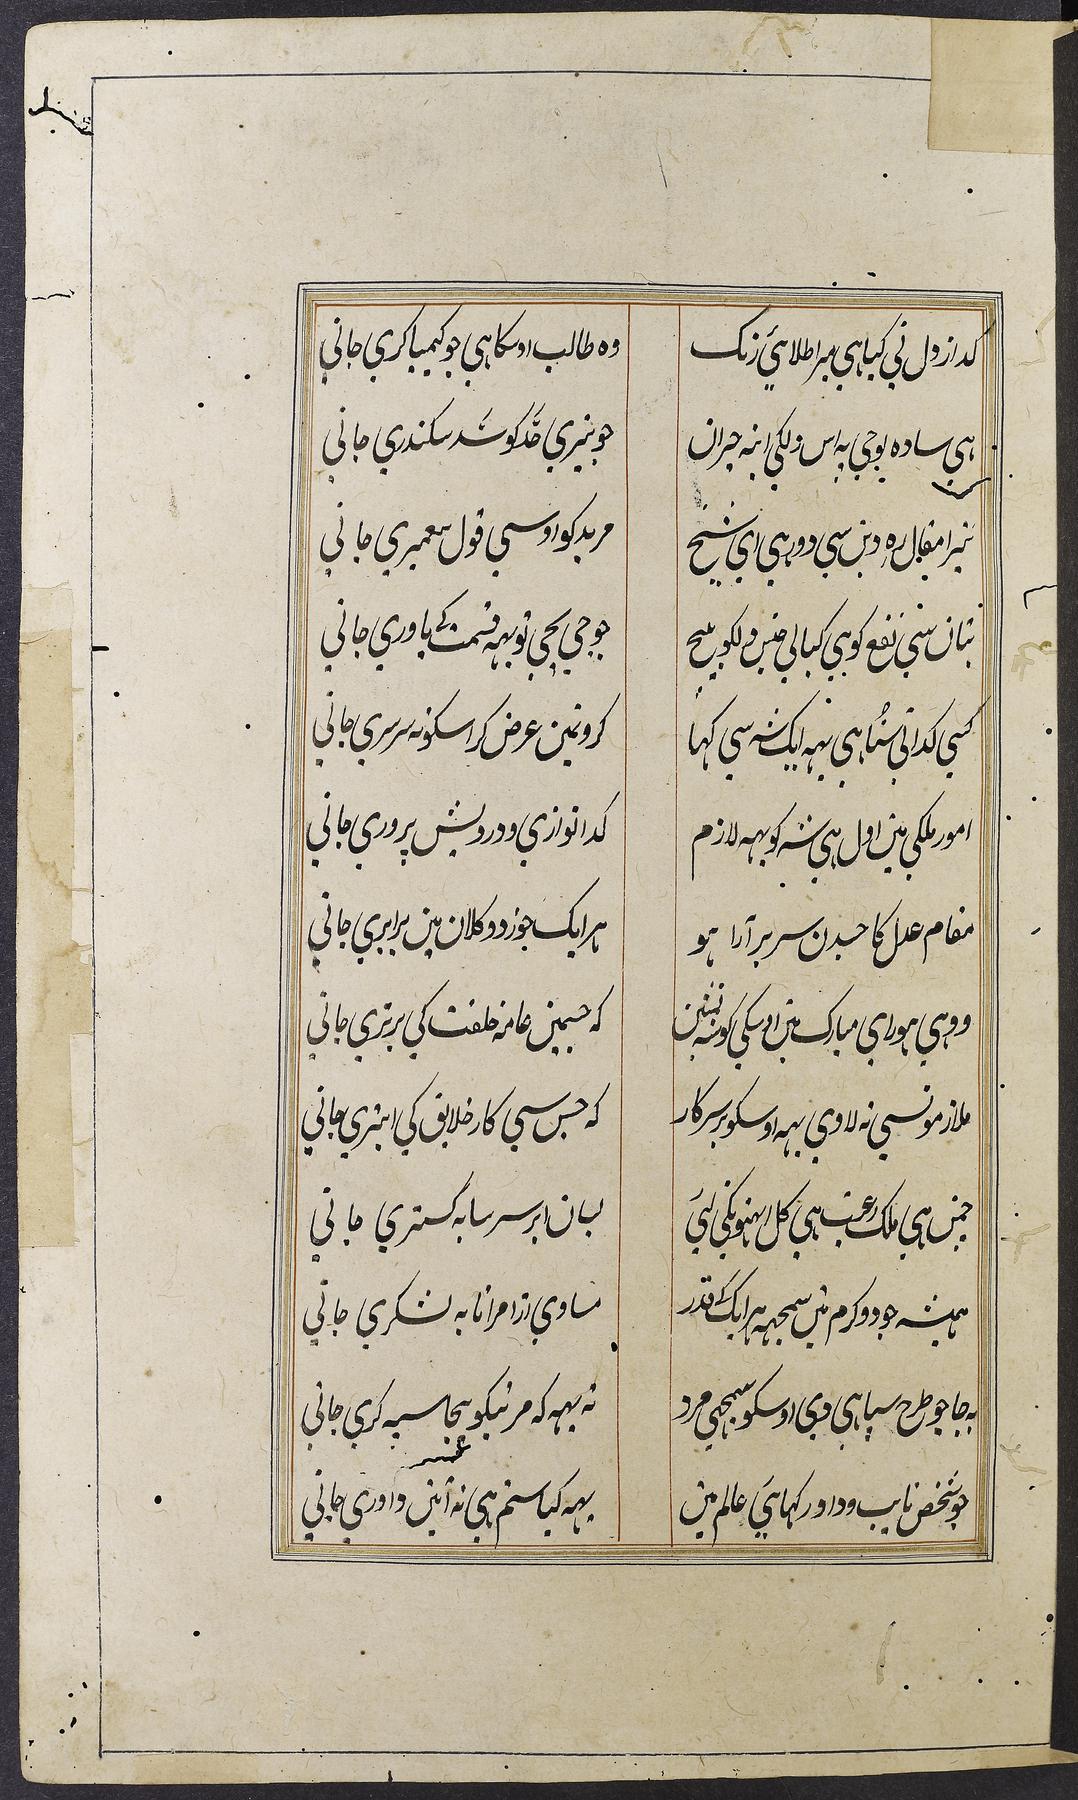 کداز دل نی کیا هی میرا طلائی رنک
وه طالب اوسکا هی جو کیمیا کری جانی
هی ساده لوحی په اس دلکی اینه حیران
جو تیری خد کو سد سکندری جانی
تیرا مقال ره دین سی دور هی ای شیخ
مرید کو اوسی قول پیمبری جانی
بتان سنی نفع کو هی کیا لی جنس دلکو بیچ
جو جی بچی تو یهه قسمت کے یاوری جانی
کسی کدانی سنا هی یهه ایک شه سی کہا
کرونمین عرض کر اسکو نه سرسری جانی
امور ملکی مین اول هی شه کو یهه لازم
کدا نوازی و درویش پروری جانی
مقام عدل کا جسدن سریر آرا هو
هر ایک خورد و کلان مین برابری جانی
وهی هو رای مبارک مین اوسکی کوشه نشین
که جسمین عامه خلقت کی برتری جانی
ملازمونسی نه لاوی یهه اوسکو بر سر کار
که جس سی کار خلایق کی ابتری جانی
چمن هی ملک رعیت هی کل انهونکی لئی
بسان ابر سر سایه گستری جانی
همیشه جود و کرم مین سمجهه هر ایک کے قدر
مساوی از امرا تا به لشکری جانی
به جا جو طرح سپاهی دی اوسکو سمجهی مرد
نه یهه که مرنیکو بیجا سپه کری جانی
جو شخص نایب داور کهای عالم مین
یهه کیا ستم هی نه آئین داوری جانی